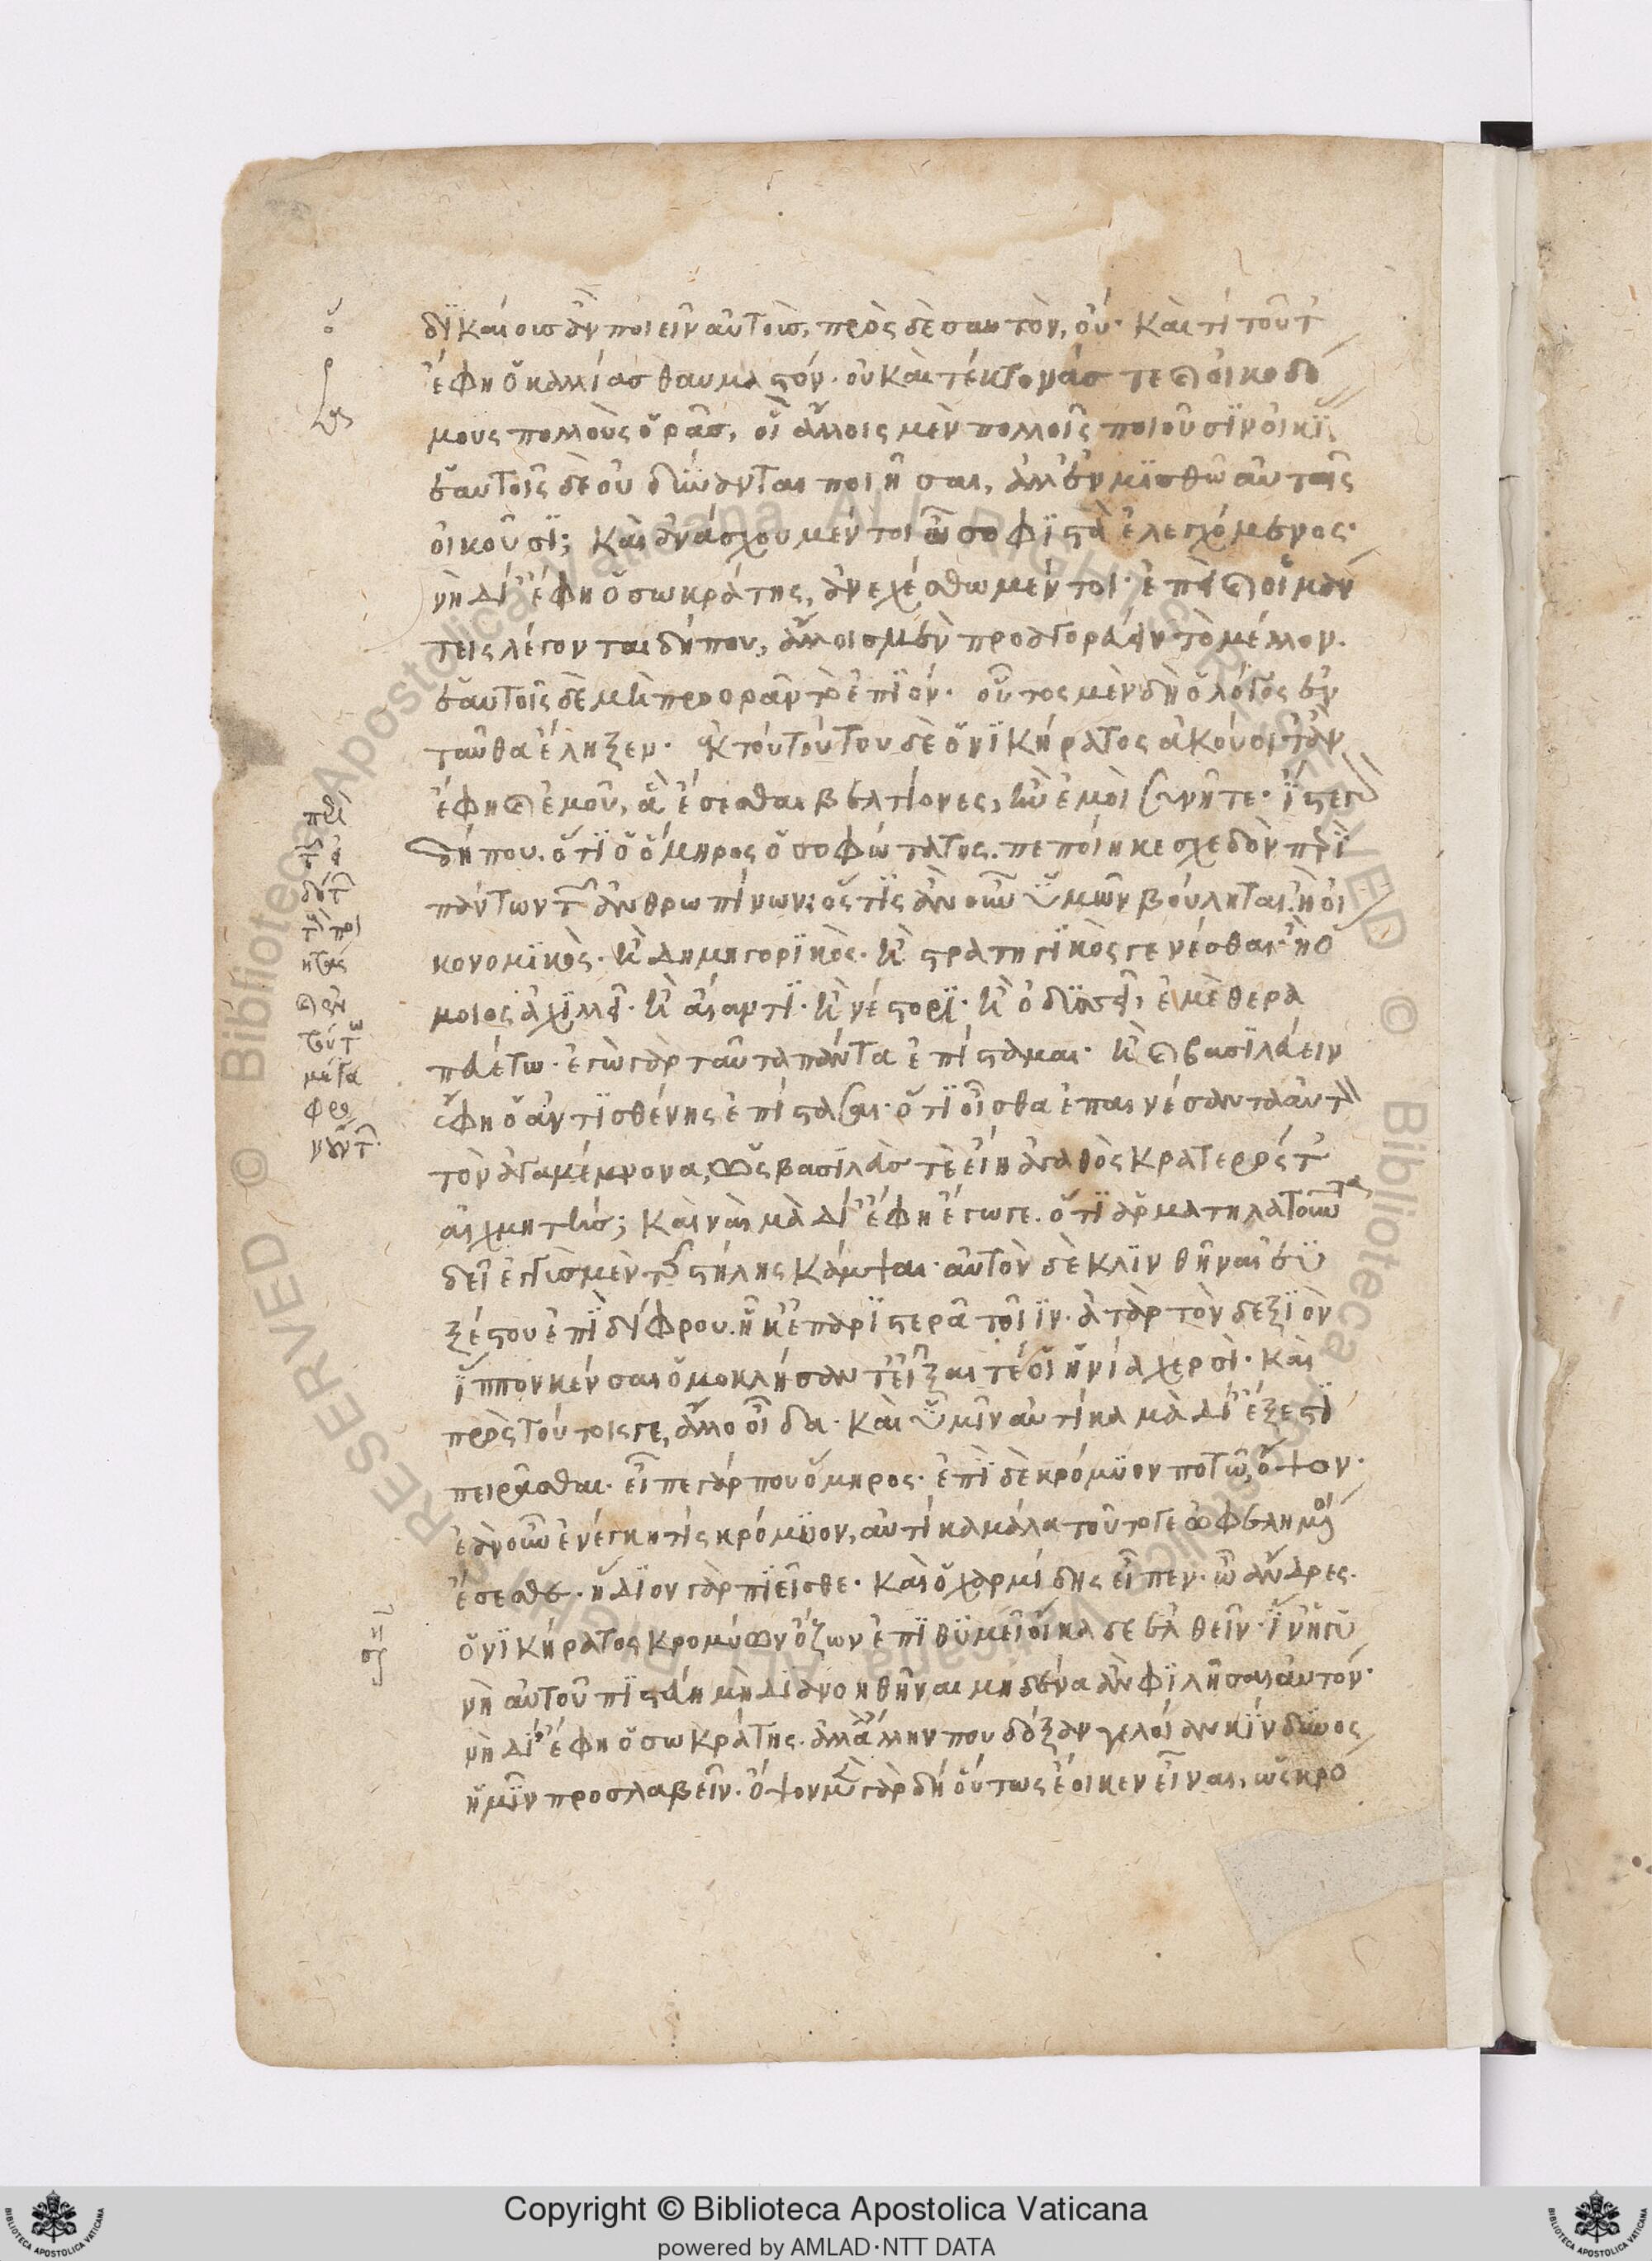 δικαίους μὲν ποιεῖν αὐτοῖς, πρὸς δὲ σαυτὸν, οὔ· καὶ τί τοῦτ
ἔφη ὁ καλλίας θαυμαστόν· οὐ καὶ τέκτονάς τε καὶ οἰκοδό
μους πολλοὺς ὁρᾶς, οἳ ἄλλοις μὲν πολλοῖς ποιοῦσιν οἰκί
ἑαυτοῖς δὲ οὐ δύνανται ποιῆσαι, ἀλλ' ἐν μισθωταῖς
οἰκοῦσι; καὶ ἀνάσχου μέντοι ὦ σοφιστὰ ἐλεγχόμενος·
νὴ Δί' ἔφη ὁ σωκράτης, ἀνεχέσθω μέντοι· ἐπεὶ καὶ οἱ μάν
τεις λέγονται δήπου, ἄλλοις μὲν προαγορεύειν τὸ μέλλον.
ἑαυτοῖς δὲ μὴ προορᾶν τὸ ἐπιόν· οὗτος μὲν δὴ ὁ λόγος ἐν
ταῦθα ἔληξεν· ἐκ τούτου τοῦ δὲ ὁ νικήρατος ἀκούοιτ' ἂν
ἔφη καὶ ἐμοῦ, ἃ ἔσεσθε βελτίονες, ἢν ἐμοὶ συνῆτε· ἴστε γὰρ
δήπου. ὅτι ὁ ὅμηρος ὁ σοφώτατος. πεποίηκε σχεδὸν περὶ
πάντων τῶν ἀνθρωπίνων· ὅστις ἂν οὖν ὑμῶν βούληται. ἢ οἰ
κονομικὸς· ἢ δημηγορικὸς· ἢ στρατηγικὸς γενέσθαι· ἢ ὅ
μοιος ἀχιλλεῖ· ἢ αἴαντι· ἢ νέστορι· ἢ ὀδυσσεῖ, ἐμὲ θερα
πευέτω· ἐγὼ γὰρ ταῦτα πάντα ἐπίσταμαι· ἢ καὶ βασιλεύειν
ἔφη ὁ ἀντισθένης ἐπίστασαι· ὅτι οἶσθα ἐπαινέσαντα αὐτ
τὸν ἀγαμέμνονα, ὡς βασιλεύς τε εἴη ἀγαθὸς κρατερός τ'
αἰχμητής; καὶ ναὶ μὰ Δί' ἔφη ἔγωγε. ὅτι ἁρματηλατοῦντα
δεῖ ἐγγὺς μὲν τῆς στήλης κάμψαι· αὐτὸν δὲ κλινθῆναι ἐϋ
ξέστου ἐπὶ δίφρου. ἦκ' ἐπ' ἀριστερὰ τοῖιν· ἀτὰρ τὸν δεξιὸν
ἵππον κένσαι ὁμοκλήσαντ' εἶξαι τέ οἱ ἡνία χερσί· καὶ
πρὸς τούτοις γε, ἄλλο οἶδα· καὶ ὑμῖν αὐτίκα μὰ Δί' ἔξεστι
πειρᾶσθαι. εἶπε γάρ που ὅμηρος· ἐπὶ δὲ κρόμυον ποτῷ, ὄψον·
ἐὰν οὖν ἐνέγκῃ τις κρόμυον, αὐτίκα μάλα τοῦτό γε ὠφελημένοι
ἔσεσθε· ἥδιον γὰρ πιεῖσθε· καὶ ὁ χαρμίδης εἶπεν· ὦ ἄνδρες.
ὁ νικήρατος κρομύων ὄζων ἐπιθυμεῖ οἴκαδε ἐλθεῖν· ἵν' ἡ γυ
νὴ αὐτοῦ πιστεύῃ μὴ διανοηθῆναι μηδένα ἂν φιλῆσαι αὐτόν·
νὴ Δί' ἔφη ὁ σωκράτης. ἀλλ' ἄλλην που δόξαν γελοίαν κίνδυνος
ἡμῖν προσλαβεῖν. ὄψον μὲν γὰρ δὴ οὕτως ἔοικεν εἶναι, ὡς κρό